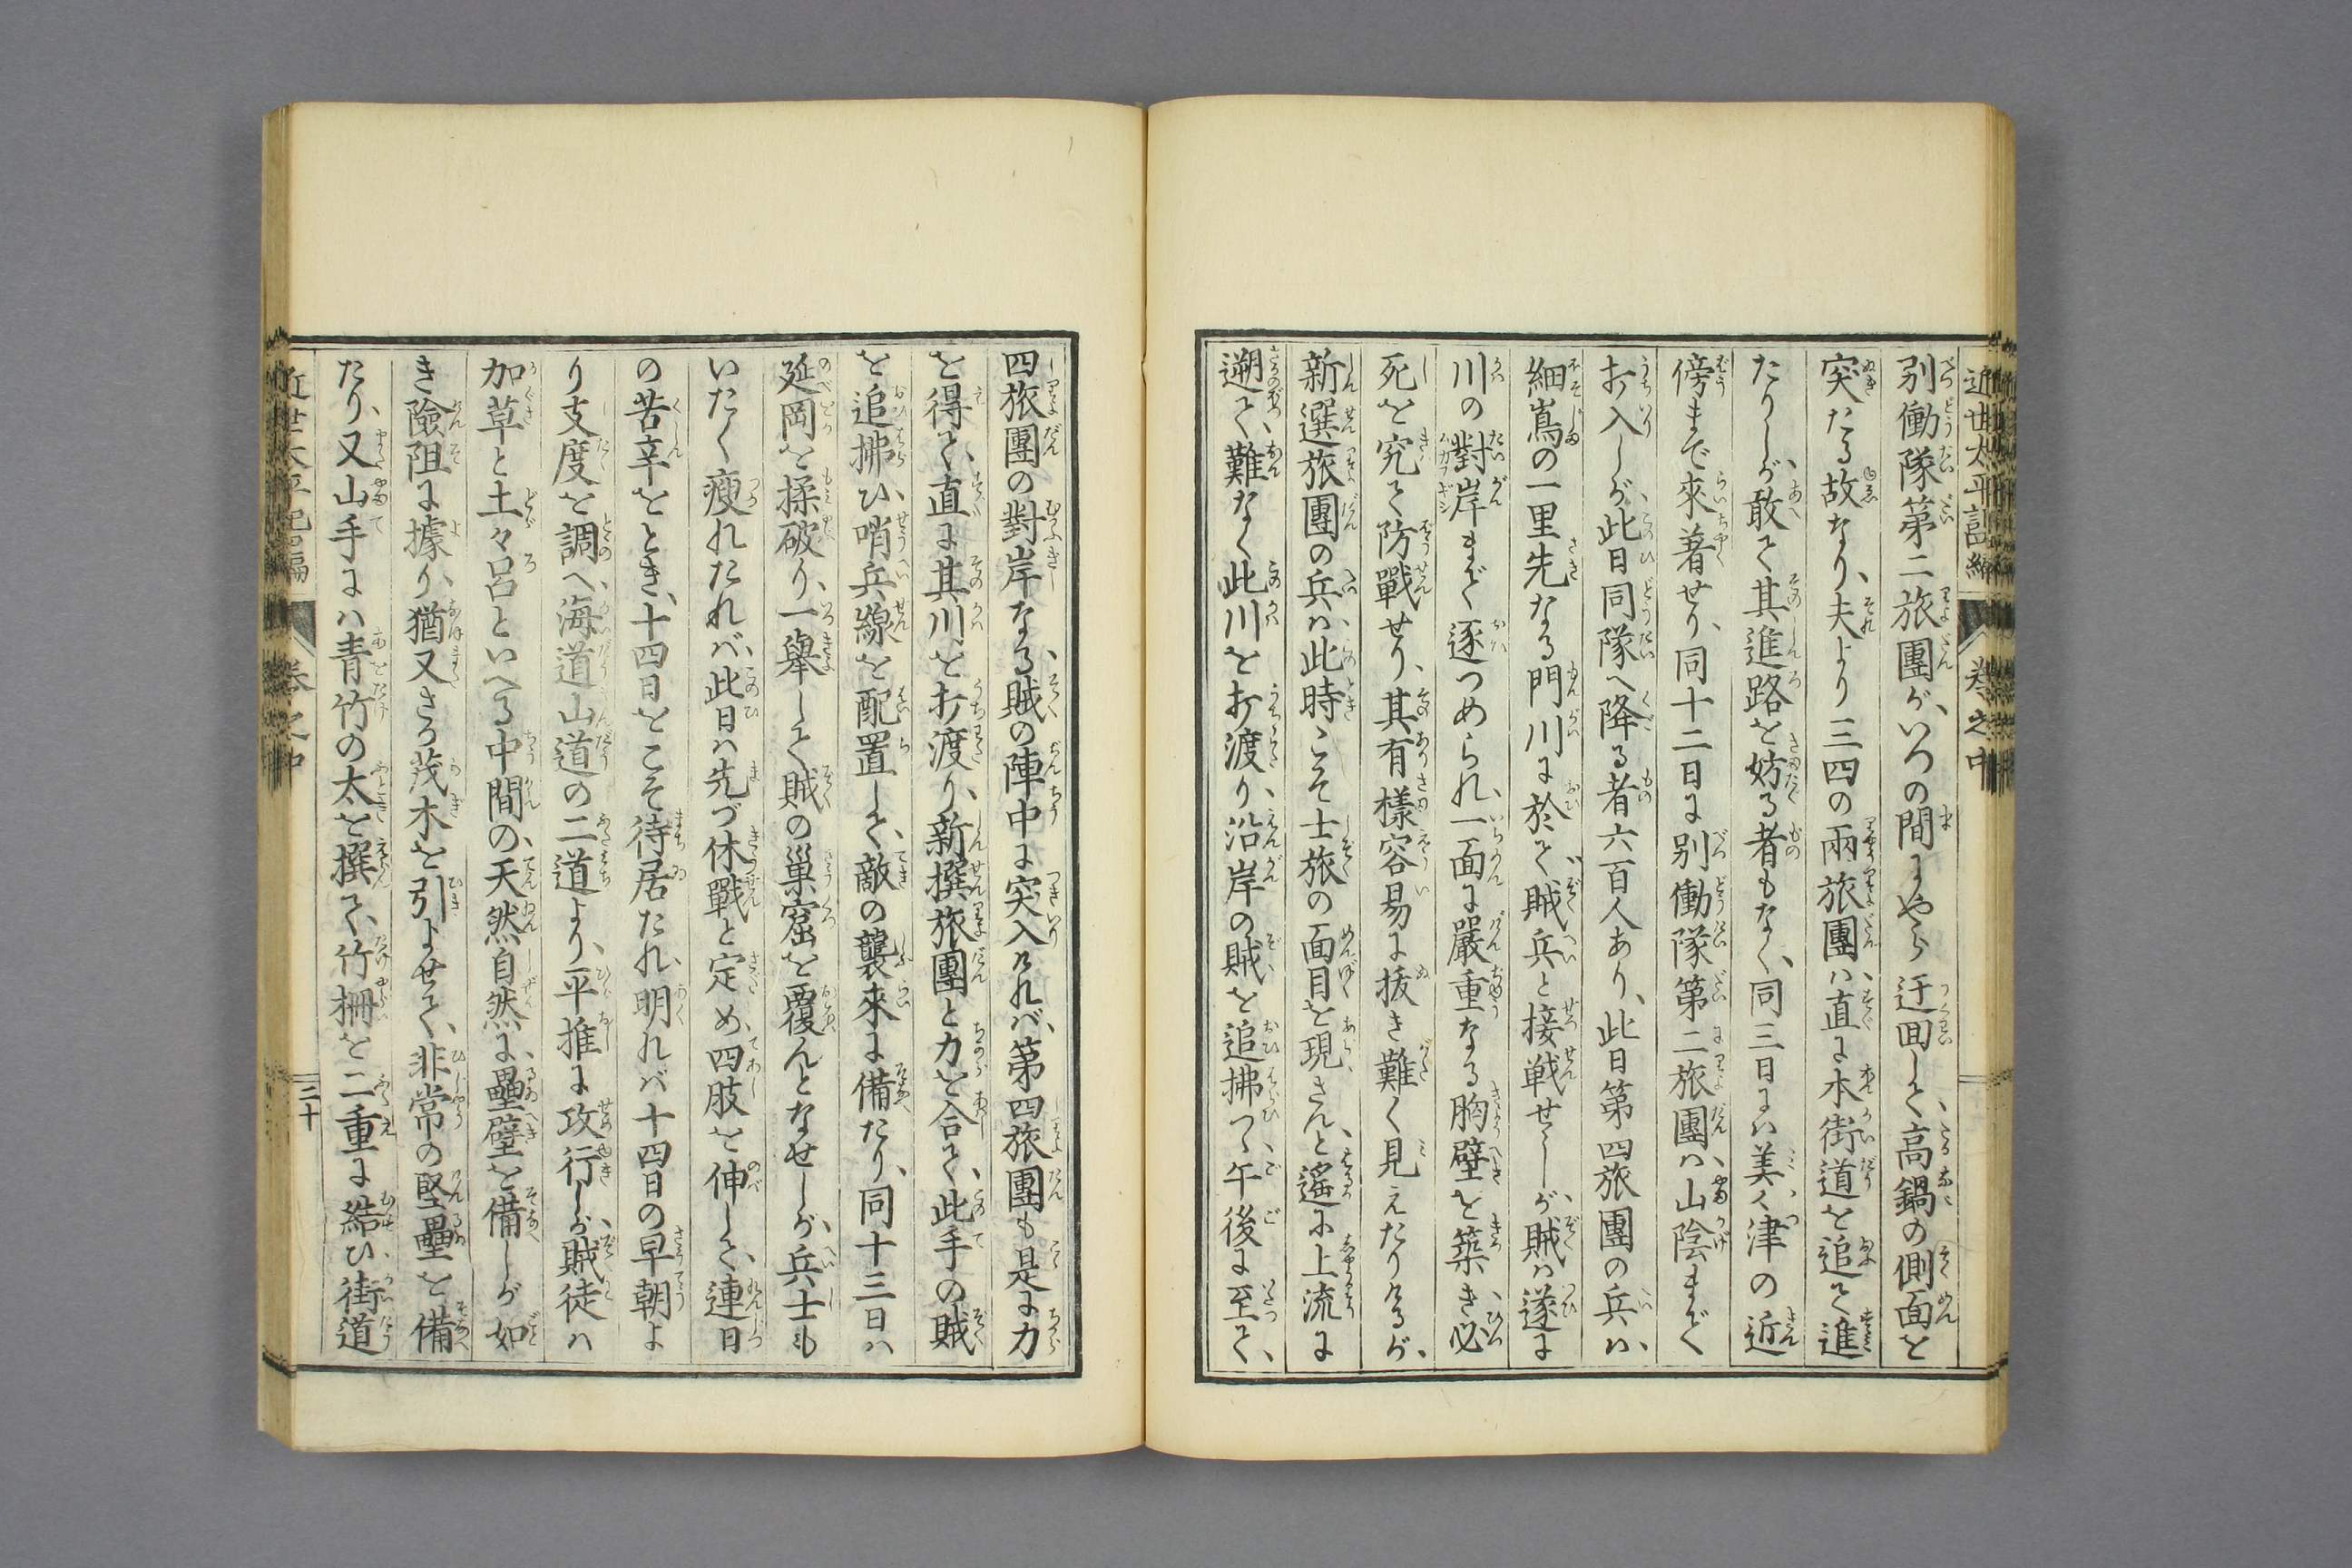 近世太平記 編 巻之中
別働隊第二旅團が、いつの間にやら迂回して、高鍋の側面を
突たる故なり、夫より三四の兩旅團ハ、直に本街道を追て進
たりしが、敢て其進路を妨る者もなく、同三日にハ美々津の近
傍まで來着せり、同十二日に別働隊第二旅團ハ、山陰まで
打入しが、此日同隊へ降る者六百人あり、此日第四旅團の兵ハ、
細嶌の一里先なる門川に於て、賊兵と接戦せしが、賊ハ遂に
川の對岸まで逐つめられ、一面に嚴重なる胸壁を築き、必
死を究て防戰せり、其有樣容易に拔き難く見えたりけるが、
新選旅團の兵ハ、此時こそ士旅の面目を現さんと、遙に上流に
遡て、難なく此川を打渡り、沿岸の賊を追拂つゝ、午後に至て、
四旅團の對岸なる、賊の陣中に突入けれバ、第四旅團も是に力
を得て、直に其川を打渡り、新撰旅團と力を合て、此手の賊
を追拂ひ、哨兵線を配置して、敵の襲来に備たり、同十三日ハ
延岡を揉破り、一擧して賊の巢窟を覆んとなせしが、兵士も
いたく瘦れたれバ、此日ハ先づ休戰と定め、四肢を伸して、連日
の苦辛をとき、十四日をこそ待居たれ、明れバ十四日の早朝よ
り支度を調へ、海道山道の二道より、平推に攻行しが、賊徒ハ
加草と土々呂といへる中間の、天然自然に、壘壁を備しが如
き險阻に據り、猶又さか茂木を引よせて、非常の堅壘を備
たり、又山手にハ青竹の太を撰て、竹柵を二重に結ひ、街道
近世太平記 編 巻之中 三十